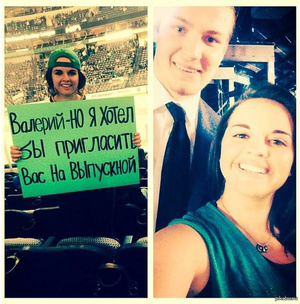 Валерий-но я Хотел
бы пригласить
Вас на Выпускной